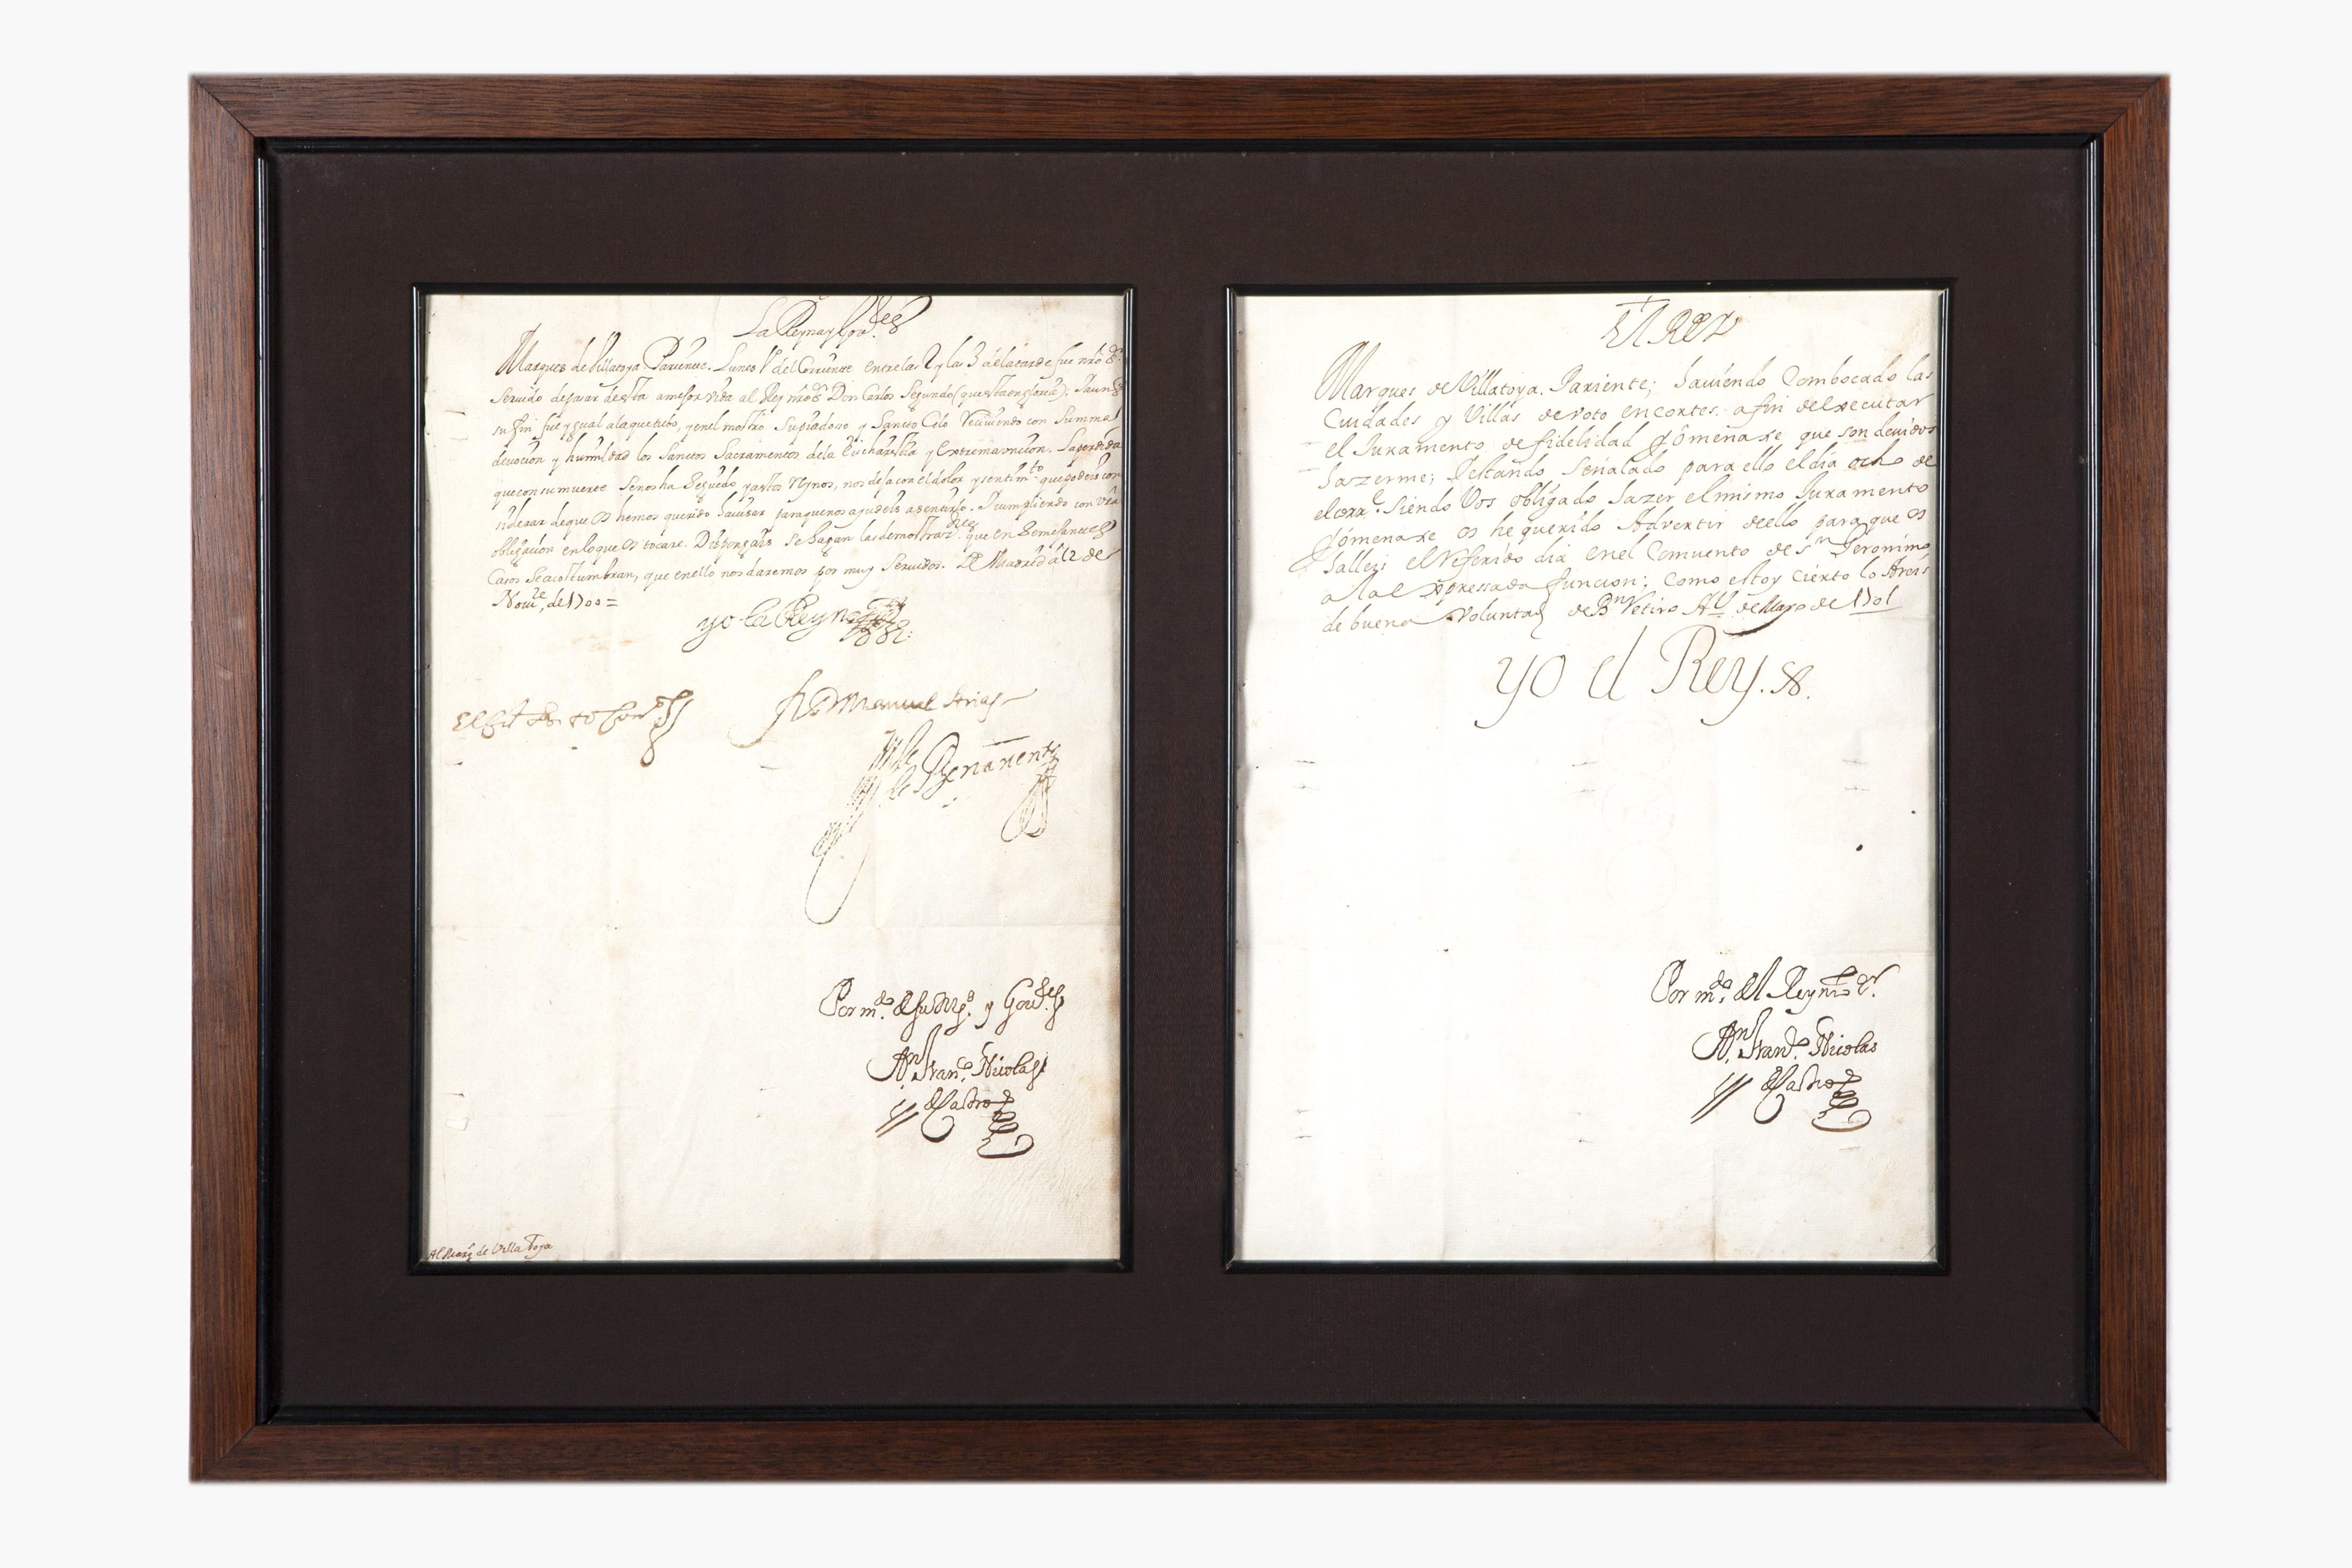 La Reyna y Gov.res
Marques de Villatoya Pariente. Lunes 1º del Corriente entre las 2 y las 3 de la tarde fue nrô S.r
Seruido de pasar desta a mejor vida al Rey nrô S.r Don Carlos Segundo (que esta en gloria). Y aunq
su fin fue ygual a la que tubo, y en el mostro Su piadoso y Sancto Celo Reciuiendo con Summa
deuocion y humildad los Sanctos Sacramentos de la Eucharistia y extremauncion. La perdida
que con su muerte Se nos ha Seguido y a estos Reynos, nos deja con el dolor y sentim.to que podeis con
siderar de que Os hemos querido hauisar para que nos ayudeis a sentirlo. Y cumpliendo con vrâ
obligacion en lo que Os tocare. Dispongais se hagan las demostraz.nes que en Semejantes
Casos Se acostumbran, que en ello nos daremos por muy Seruidos. De Madrid a 12 de
Nou.re de 1700=
yo la Reyna
fr D Manuel Arias
de Benavente
Por m.do de su Mg.d y Gou.res
An.to Fran.co Nicolas
de Castro
Al Marq de Villa Toya
El Rey
Marques de Villatoya. Pariente; hauiendo Combocado las
Ciudades y Villas de voto en cortes. a fin de executar
el Juramento de fidelidad y omenaxe que son deuidos
hazerme; Y estando Señalado para ello el dia ocho de
el corr.te Siendo Vos obligado hazer el mismo Juramento
y omenaxe os he querido Advertir dello para que os
halleis el Referido dia en el Comuento de S.n Geronimo
a la expressada funcion; como estoy cierto lo Areis
de buena voluntad de B.n Retiro A 1 de Mayo de 1701
yo el Rey.
Por m.do del Rey nrô S.r
An.to Fran.co Nicolas
de Castro